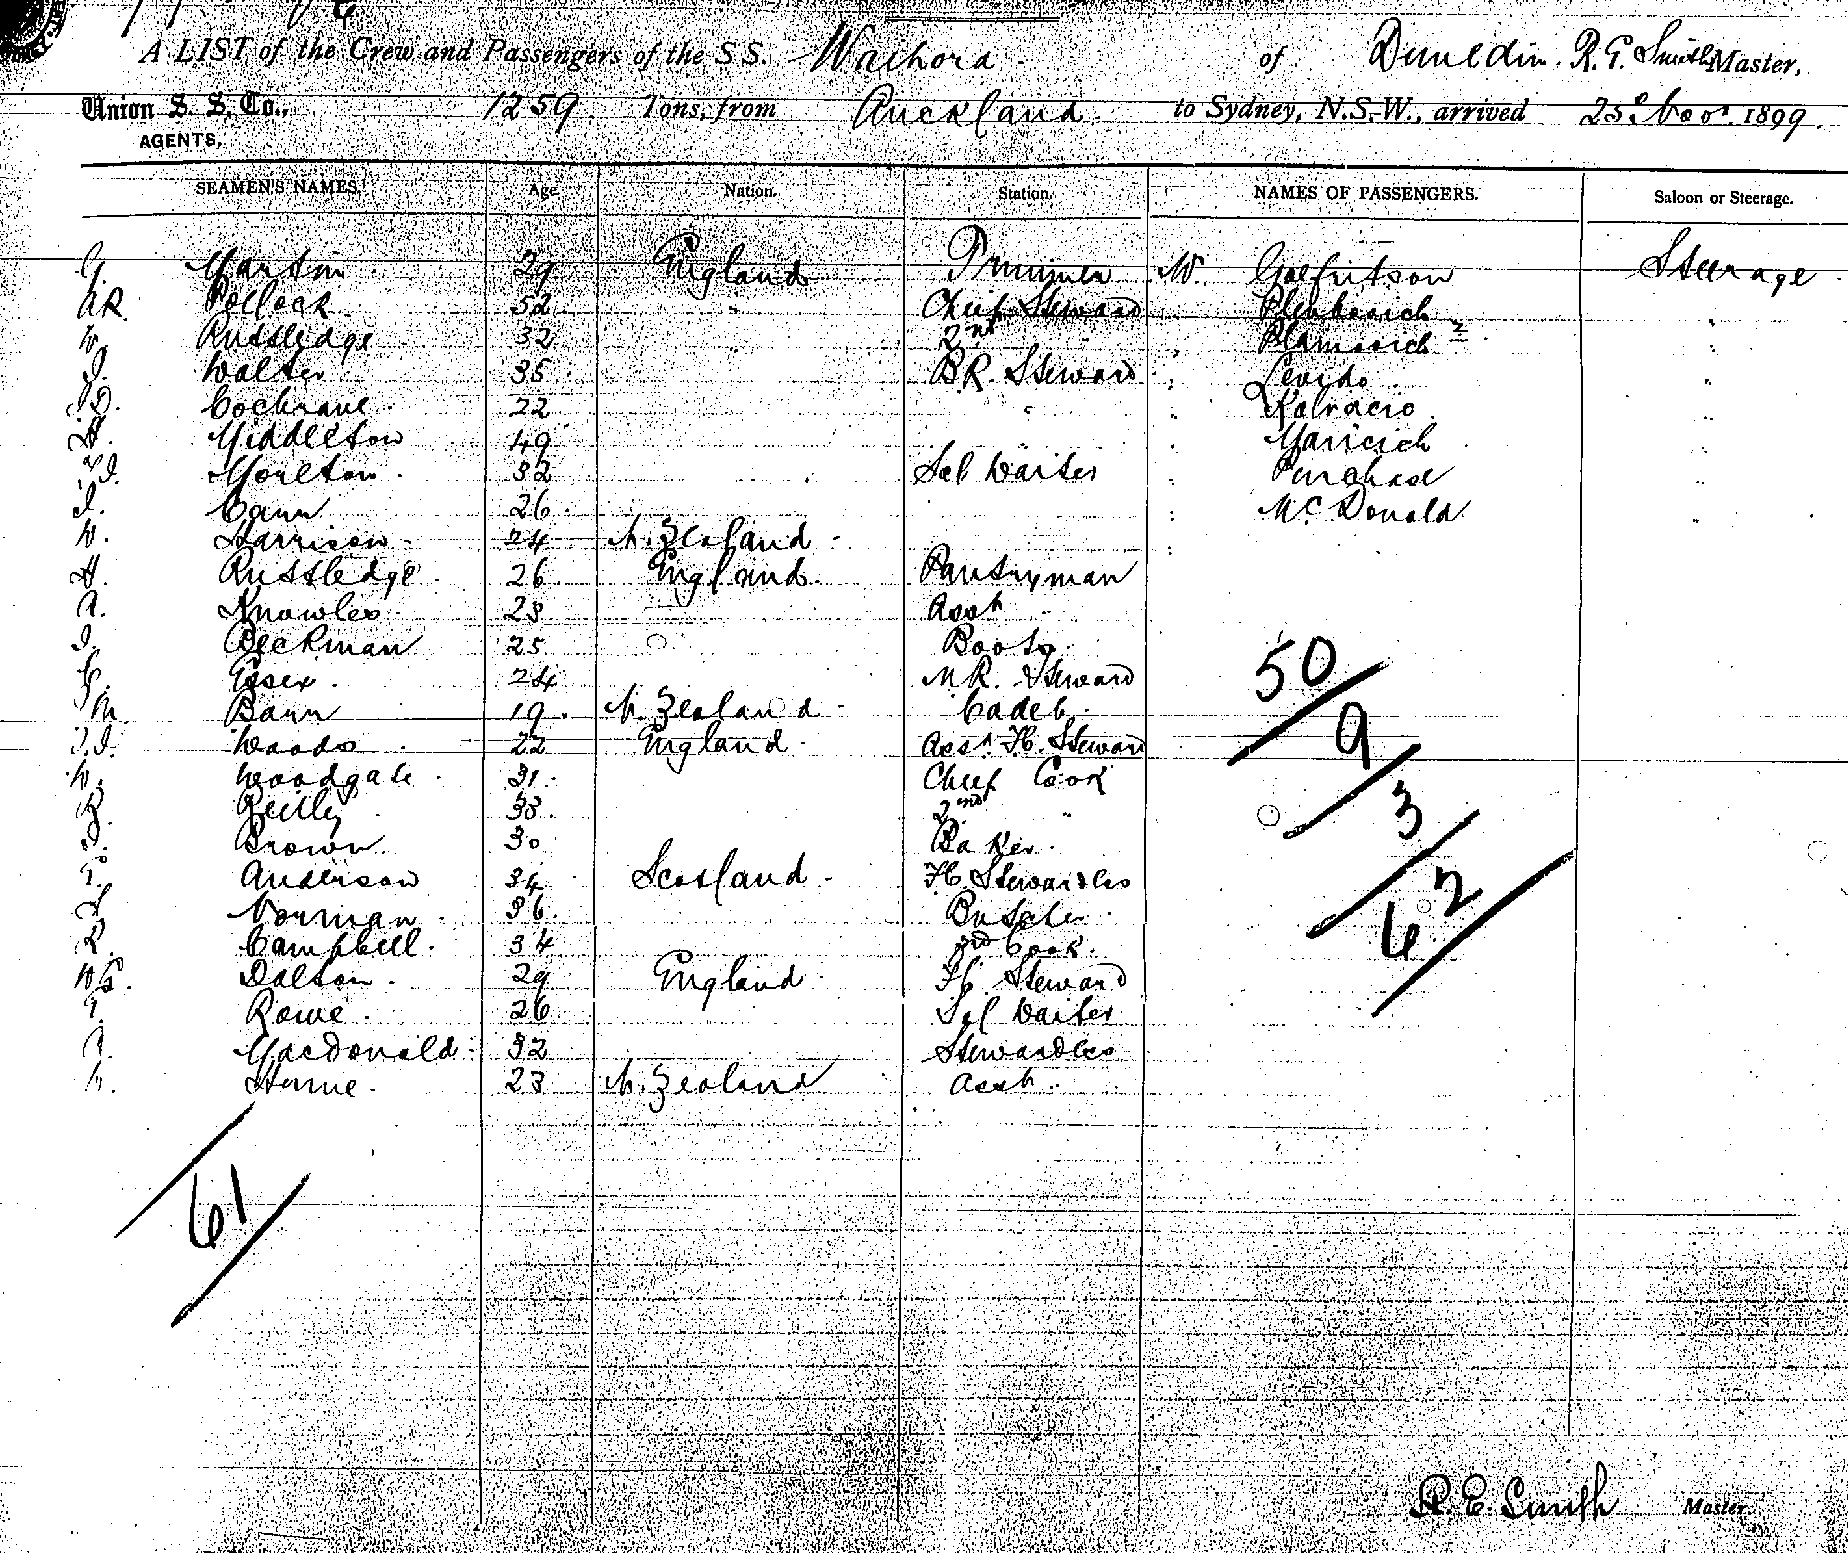 A LIST of the Crew and Passengers of the S S. Waihora of Dunedin. R. E. Smith Master,
Union S. S. Co., 1259 Tons, from Auckland to Sydney, N.S.W., arrived 25 Nov 1899.
AGENTS,
SEAMEN'S NAMES. Age Nation. Station. NAMES OF PASSENGERS. Saloon or Steerage.
29 England Trimmer Steerage
A.R. Pollock 52 " Chief Steward
W. Russledge 32 2nd "
J. Walter 35 BR. Steward Levido
Cochrane 22
Middleton 49 Maricich
Moulton 32 Sal Waiter Purchase
J. Cann 26 McDonald
W. Harrison 24 N. Zealand
H. Russledge 26 England Pantryman
A. Knowles 23 Asst
J. Beckman 25 Boots
Essex 24 M R. Steward
Bann 19 N. Zealand Cadet
Woods 22 England Asst F.C. Steward
W. Woodgate 31 Chief Cook
Reilly 38 2nd "
Brown 30 Baker
Anderson 34 Scotland F.C. Stewardess
Norman 36 Butcher
R. Campbell 34 3rd Cook
Dalton 29 England F.C. Steward
Rowe 26 Sal Waiter
MacDonald 32 Stewardess
Horne 23 N. Zealand Asst
50
9
3
2
6
61
R. E. Smith Master